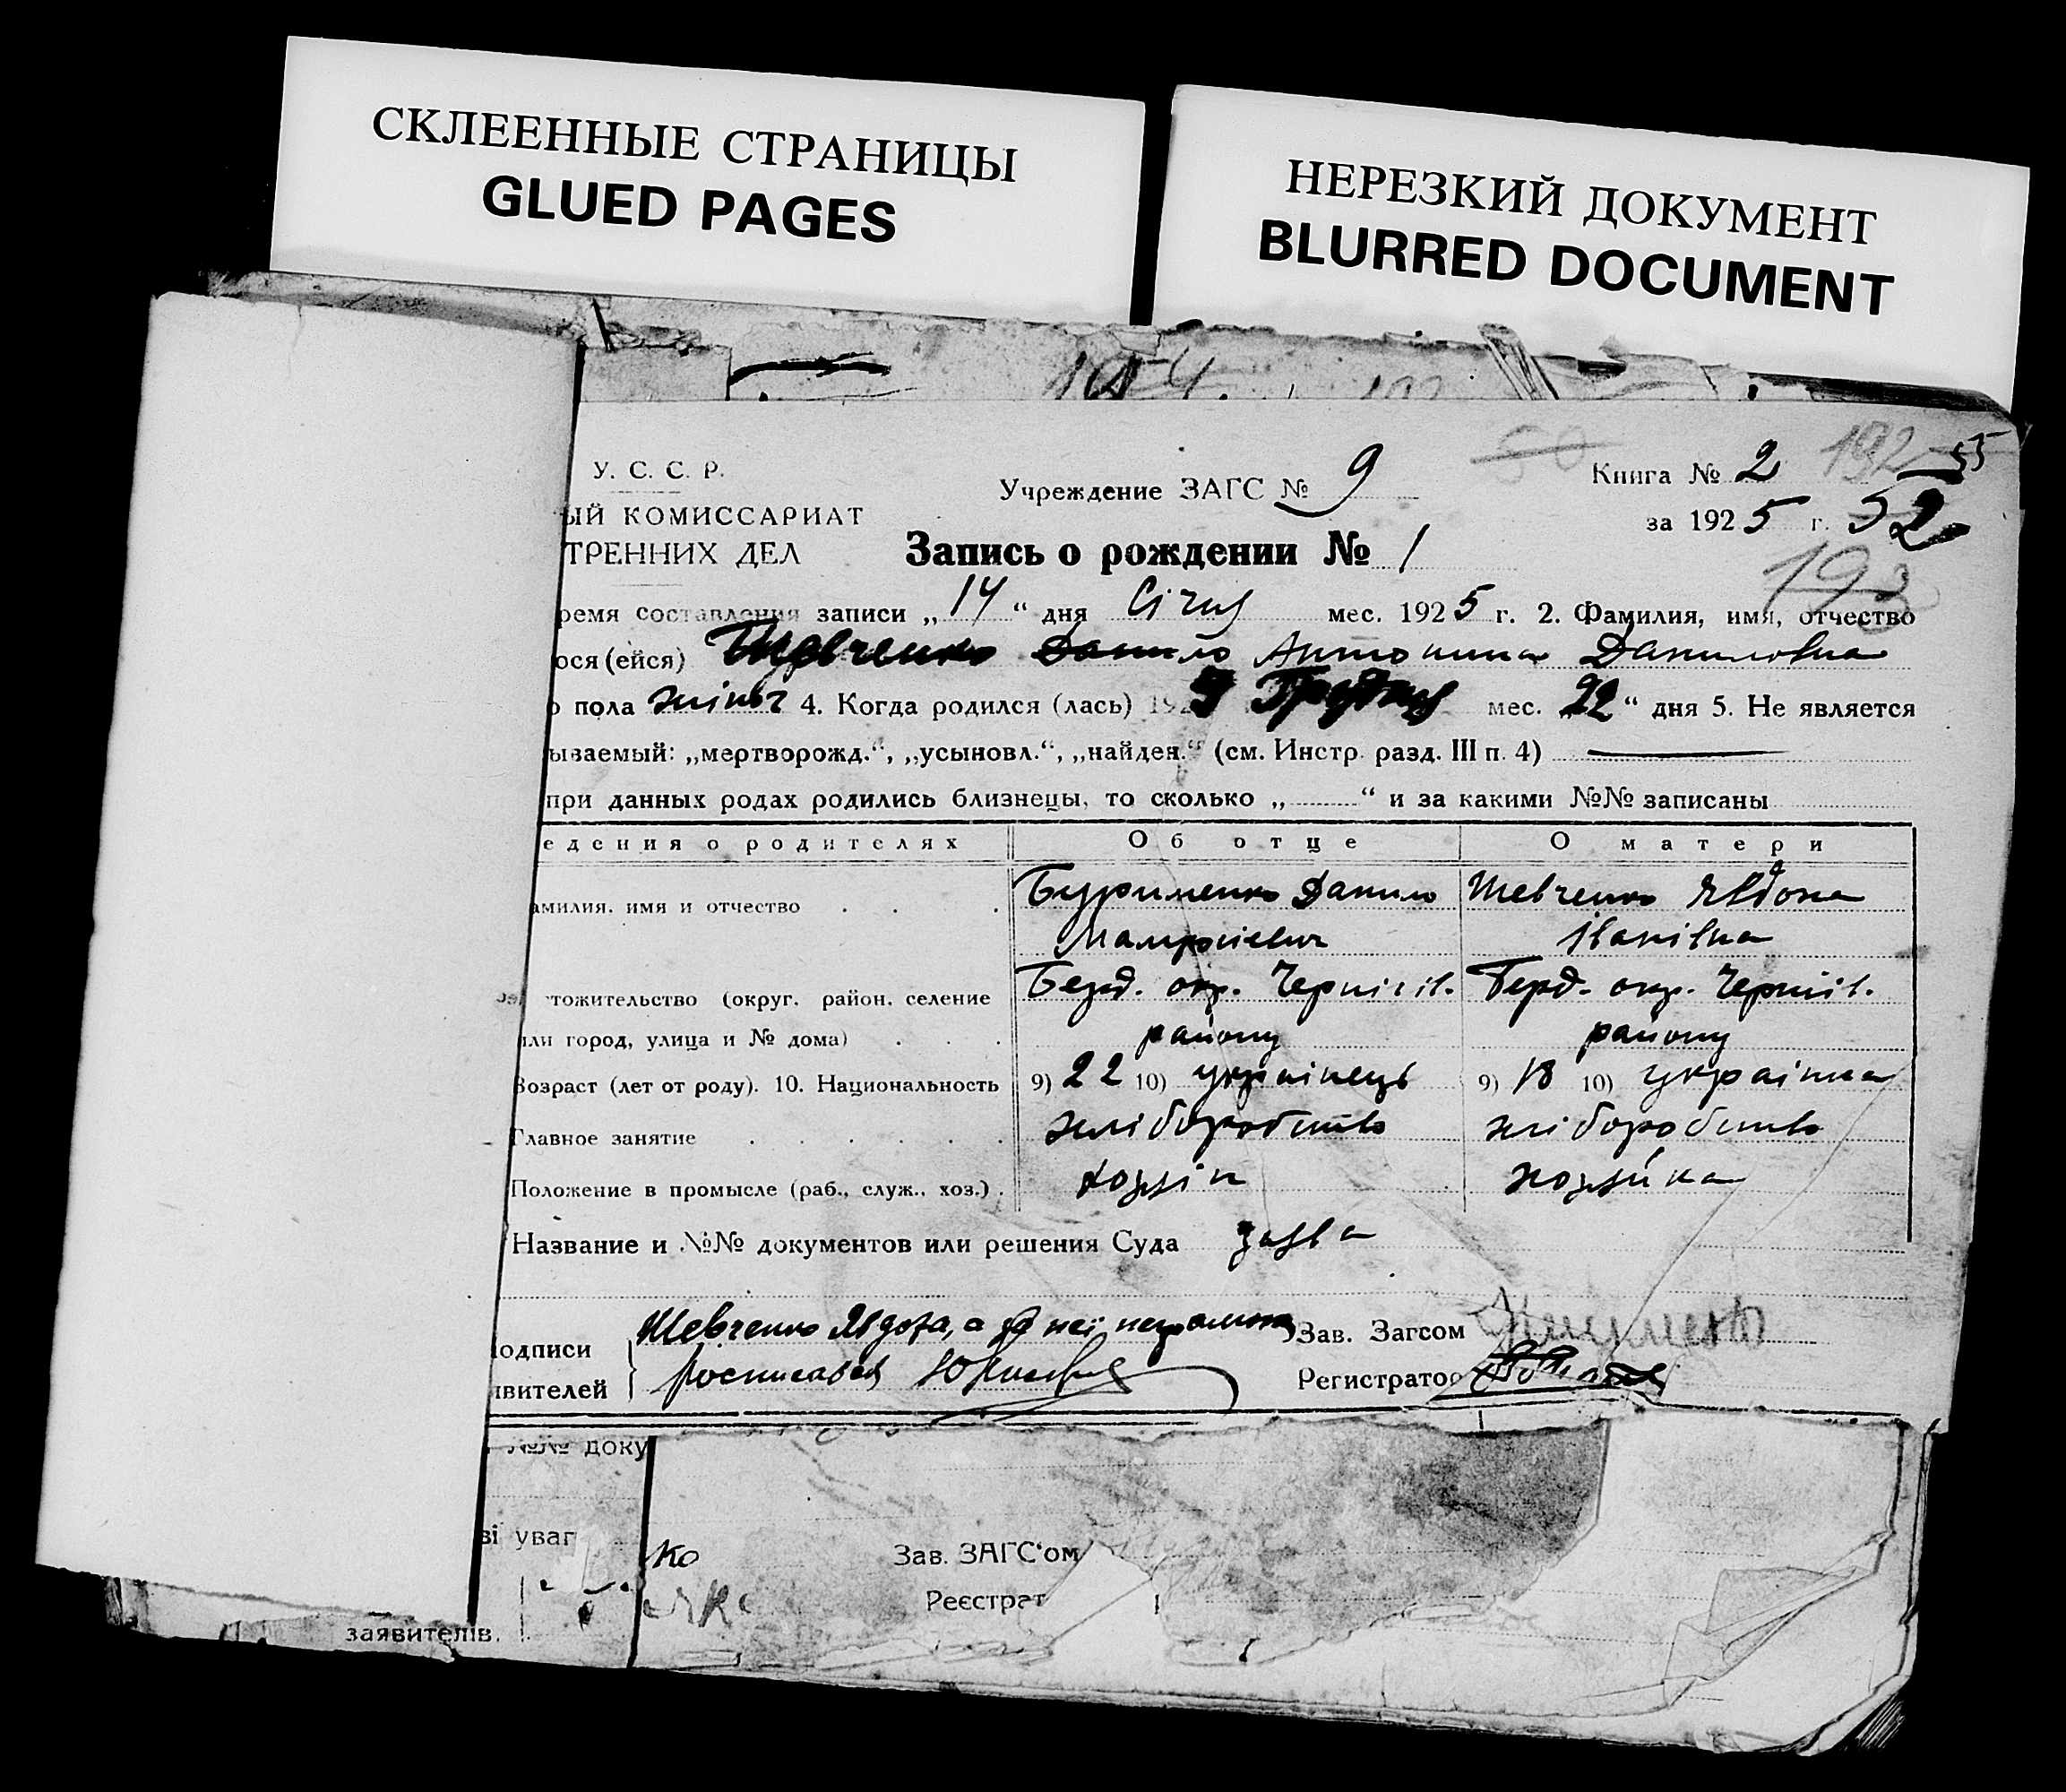 СКЛЕЕННЫЕ СТРАНИЦЫ
GLUED PAGES
НЕРЕЗКИЙ ДОКУМЕНТ
BLURRED DOCUMENT
У. С. С. Р.
Учреждение ЗАГС № 9
Книга № 2
ЫЙ КОМИССАРИАТ
за 1925 г. 52
ТРЕННИХ ДЕЛ
Запись о рождении № 1
ремя составления записи „14“ дня Січня мес. 1925 г. 2. Фамилия, имя, отчество
ося (ейся) Шевченко Антонина Даниловна
о пола жіноч 4. Когда родился (лась) 192 Грудня мес. „22“ дня 5. Не является
ываемый: „мертворожд.“, „усыновл.“, „найден.“ (см. Инстр. разд. III п. 4)
при данных родах родились близнецы, то сколько „ “ и за какими №№ записаны
едения о родителях Об отце О матери
амилия, имя и отчество . . . Бурименко Данило Шевченко Явдоха
Іванівна
тожительство (округ. район. селение Берд. окр. Чернігів. Берд. окр. Чернігів.
или город, улица и № дома) . . . району району
Возраст (лет от роду). 10. Национальность 9) 22 10) українець 9) 18 10) українка
Главное занятие . . . . . . хліборобство хліборобство
Положение в промысле (раб., служ., хоз.) . хозяїн хозяйка
Название и №№ документов или решения Суда заява
Шевченко Явдоха, а за неї неграмотну
Зав. Загсом
одписи
росписався
явителей
Регистратор
№№ доку
ві уваг
ко
Зав. ЗАГС‘ом
Реєстрат
заявителів.